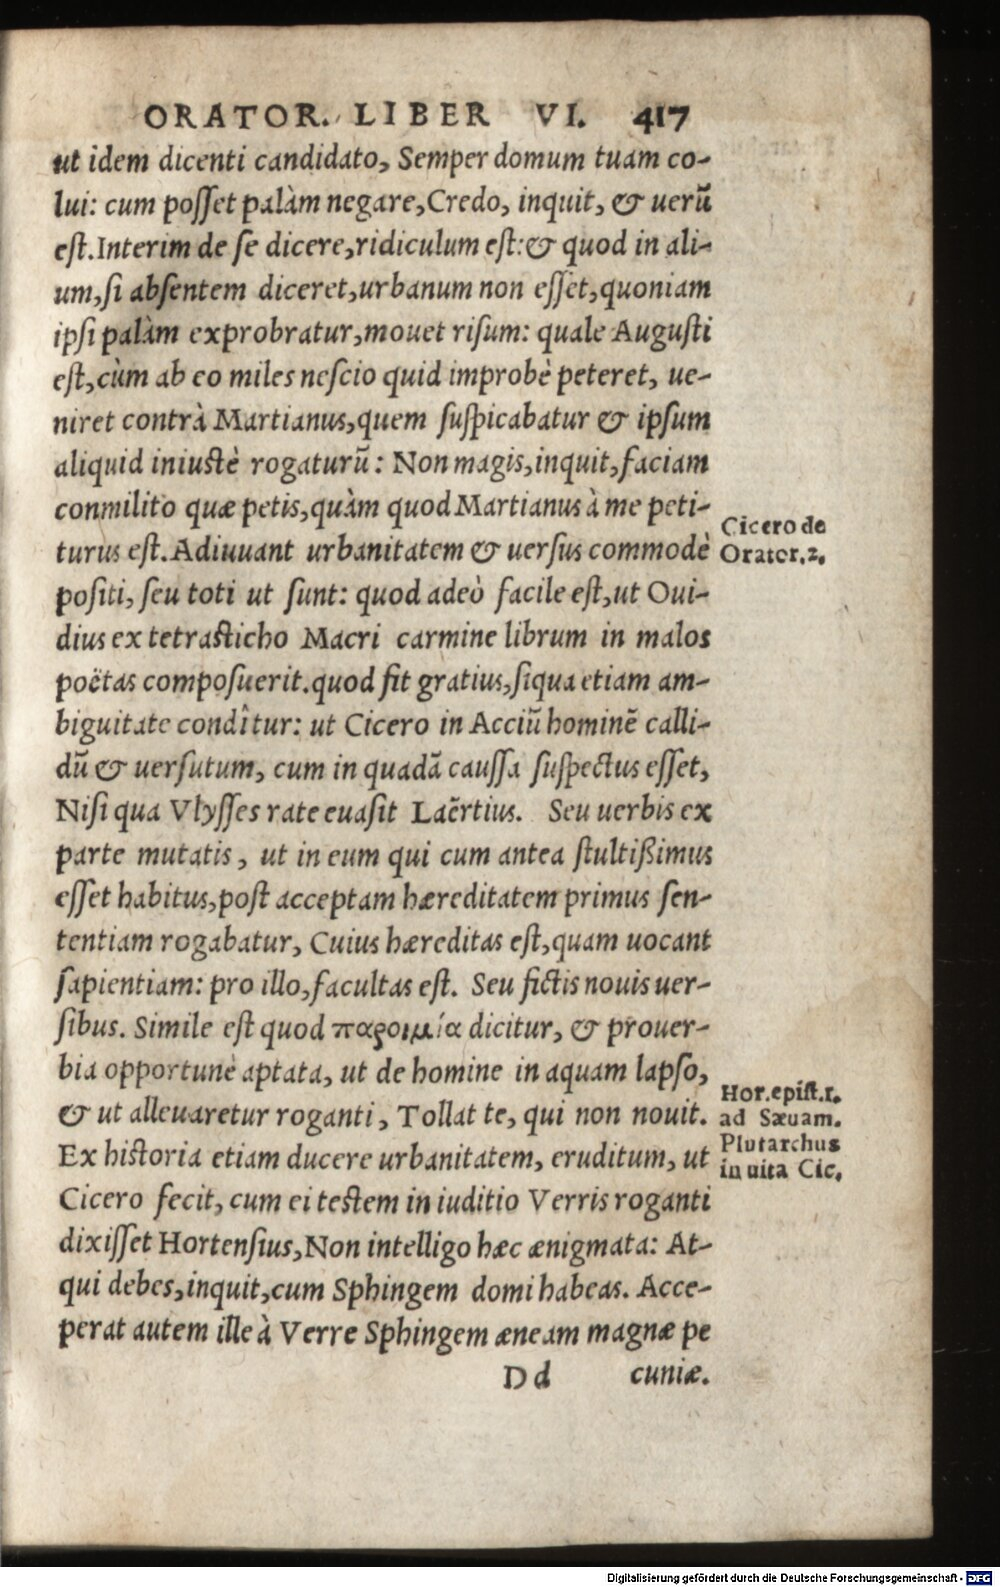 ORATOR. LIBER VI. 417
ut idem dicenti candidato, Semper domum tuam co-
lui: cum posset palàm negare, Credo, inquit, & uerū
est. Interim de se dicere, ridiculum est: & quod in ali-
um, si absentem diceret, urbanum non esset, quoniam
ipsi palàm exprobratur, mouet risum: quale Augusti
est, cùm ab eo miles nescio quid improbè peteret, ue-
niret contrà Martianus, quem suspicabatur & ipsum
aliquid iniustè rogaturū: Non magis, inquit, faciam
conmilito quæ petis, quàm quod Martianus à me peti-
turus est. Adiuuant urbanitatem & uersus commodè
positi, seu toti ut sunt: quod adeò facile est, ut Oui-
dius ex tetrasticho Macri carmine librum in malos
poëtas composuerit. quod fit gratius, siqua etiam am-
biguitate condîtur: ut Cicero in Acciū hominē calli-
dū & uersutum, cum in quadā caussa suspectus esset,
Nisi qua Vlysses rate euasit Laērtius. Seu uerbis ex
parte mutatis, ut in eum qui cum antea stultißimus
esset habitus, post acceptam hæreditatem primus sen-
tentiam rogabatur, Cuius hæreditas est, quam uocant
sapientiam: pro illo, facultas est. Seu fictis nouis uer-
sibus. Simile est quod παροιμία dicitur, & prouer-
bia opportunè aptata, ut de homine in aquam lapso,
& ut alleuaretur roganti, Tollat te, qui non nouit.
Ex historia etiam ducere urbanitatem, eruditum, ut
Cicero fecit, cum ei testem in iuditio Verris roganti
dixisset Hortensius, Non intelligo hæc ænigmata: At-
qui debes, inquit, cum Sphingem domi habeas. Acce-
perat autem ille à Verre Sphingem æneam magnæ pe
Dd cuniæ.
Cicero de
Orator. 2.
Hor. epist. 1.
ad Sæuam.
Plutarchus
in uita Cic.
Digitalisierung gefördert durch die Deutsche Forschungsgemeinschaft - DFG